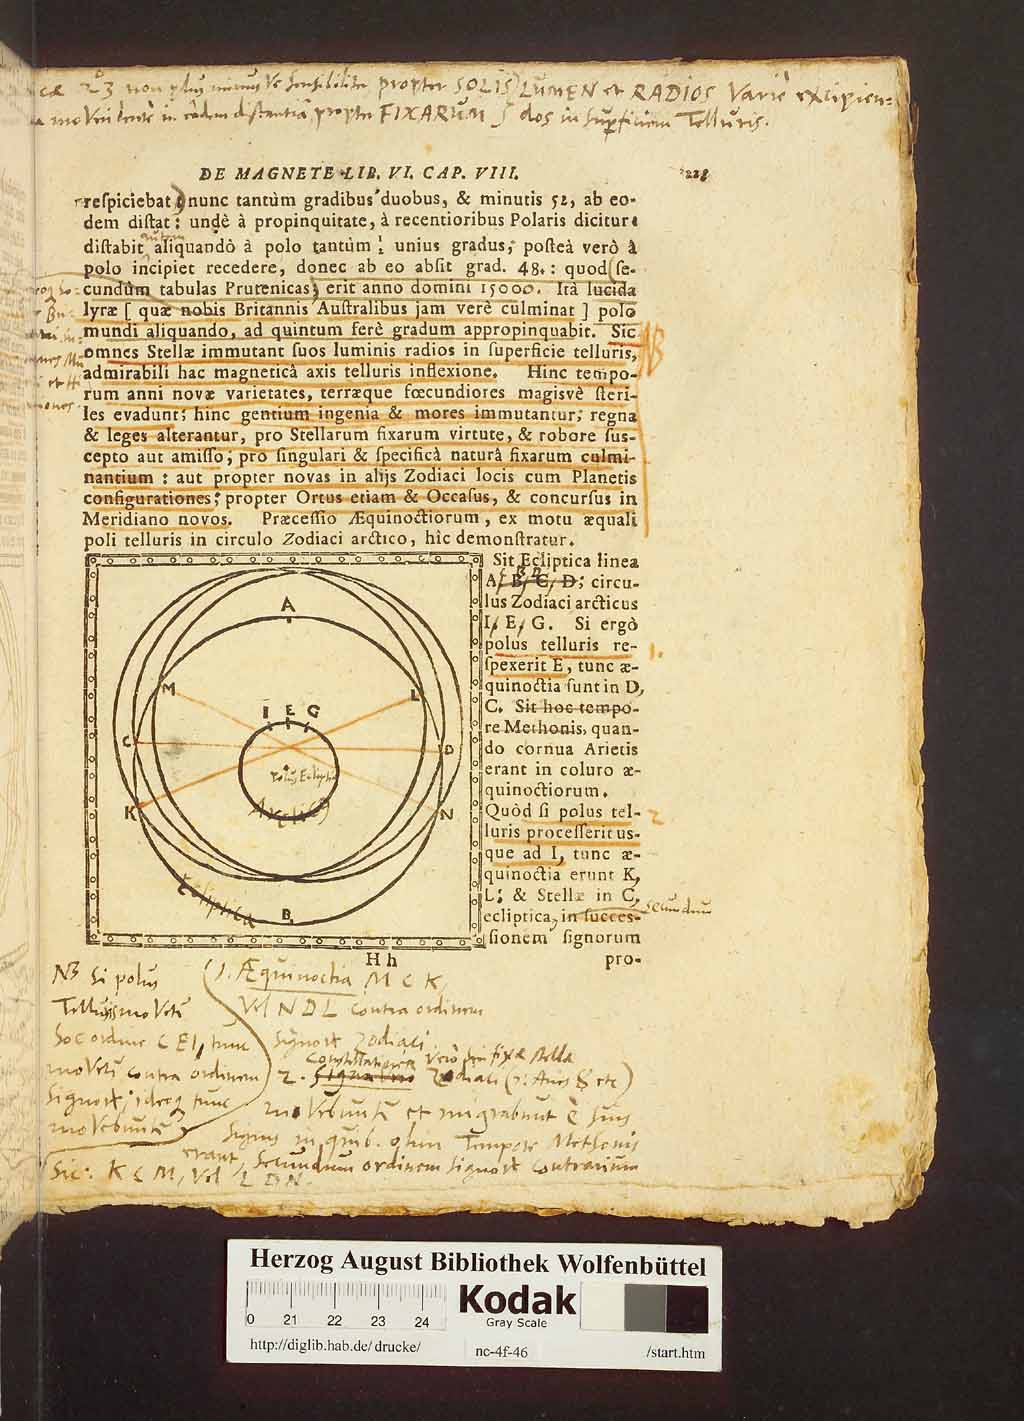 SOLIS LUMEN et RADIOS Varie excipien-
moventur in eadem distantia, propter FIXARUM dos in superficiem Telluris.
DE MAGNETE LIB. VI. CAP. VIII.
respiciebat; nunc tantùm gradibus duobus, & minutis 52, ab eo-
dem distat: undè à propinquitate, à recentioribus Polaris dicitur:
distabit autem aliquandò à polo tantùm ½ unius gradus; posteà verò à
polo incipiet recedere, donec ab eo absit grad. 48.: quod (se-
cundùm tabulas Prutenicas) erit anno domini 15000. Ità lucida
lyræ [ quæ nobis Britannis Australibus jam verè culminat ] polo
mundi aliquando, ad quintum ferè gradum appropinquabit. Sic
omnes Stellæ immutant suos luminis radios in superficie telluris,
admirabili hac magneticâ axis telluris inflexione. Hinc tempo-
rum anni novæ varietates, terræque fœcundiores magisvè steri-
les evadunt; hinc gentium ingenia & mores immutantur; regna
& leges alterantur, pro Stellarum fixarum virtute, & robore sus-
cepto aut amisso; pro singulari & specificâ naturâ fixarum culmi-
nantium: aut propter novas in alijs Zodiaci locis cum Planetis
configurationes; propter Ortus etiam & Occasus, & concursus in
Meridiano novos. Præcessio Æquinoctiorum, ex motu æquali
poli telluris in circulo Zodiaci arctico, hîc demonstratur.
NB
Sit Ecliptica linea
A, B, C, D; circu-
lus Zodiaci arcticus
I, E, G. Si ergò
polus telluris re-
spexerit E, tunc æ-
quinoctia sunt in D,
C. Sit hoc tempo-
re Methonis, quan-
do cornua Arietis
erant in coluro æ-
quinoctiorum.
Quòd si polus tel-
luris processerit us-
que ad I, tunc æ-
quinoctia erunt K,
L; & Stellæ in C,
ecliptica, in succes-
sionem signorum
secundum
1.
2
A
M
L
I E G
C
D
Polus Eclipticæ
K
N
Arcticus
Ecliptica
B
Hh
pro-
NB Si polus
Telluris movet
hoc ordine C E I, tunc
movetur contra ordinem
signor; ideoq tunc
movebuntur
1. Æquinoctia M C K,
Vel N D L contra ordinem
signor Zodiaci.
2. Constellationes vero seu fixæ stellæ
Zodiaci
movebuntur et migrabunt è suis
signis in quib. olim Tempore Methonis
erant, Secundum ordinem signor contrarium
Sic: K C M, Vel L D N.
Herzog August Bibliothek Wolfenbüttel
Kodak
Gray Scale
0 21 22 23 24
http://diglib.hab.de/drucke/ nc-4f-46 /start.htm